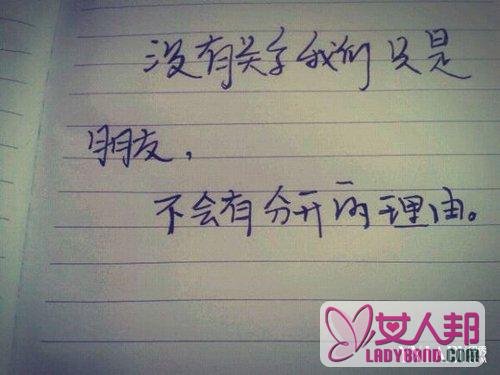 没有关于我们只是
朋友，
不会有分开的理由。
女人邦
LADYBAND.COM